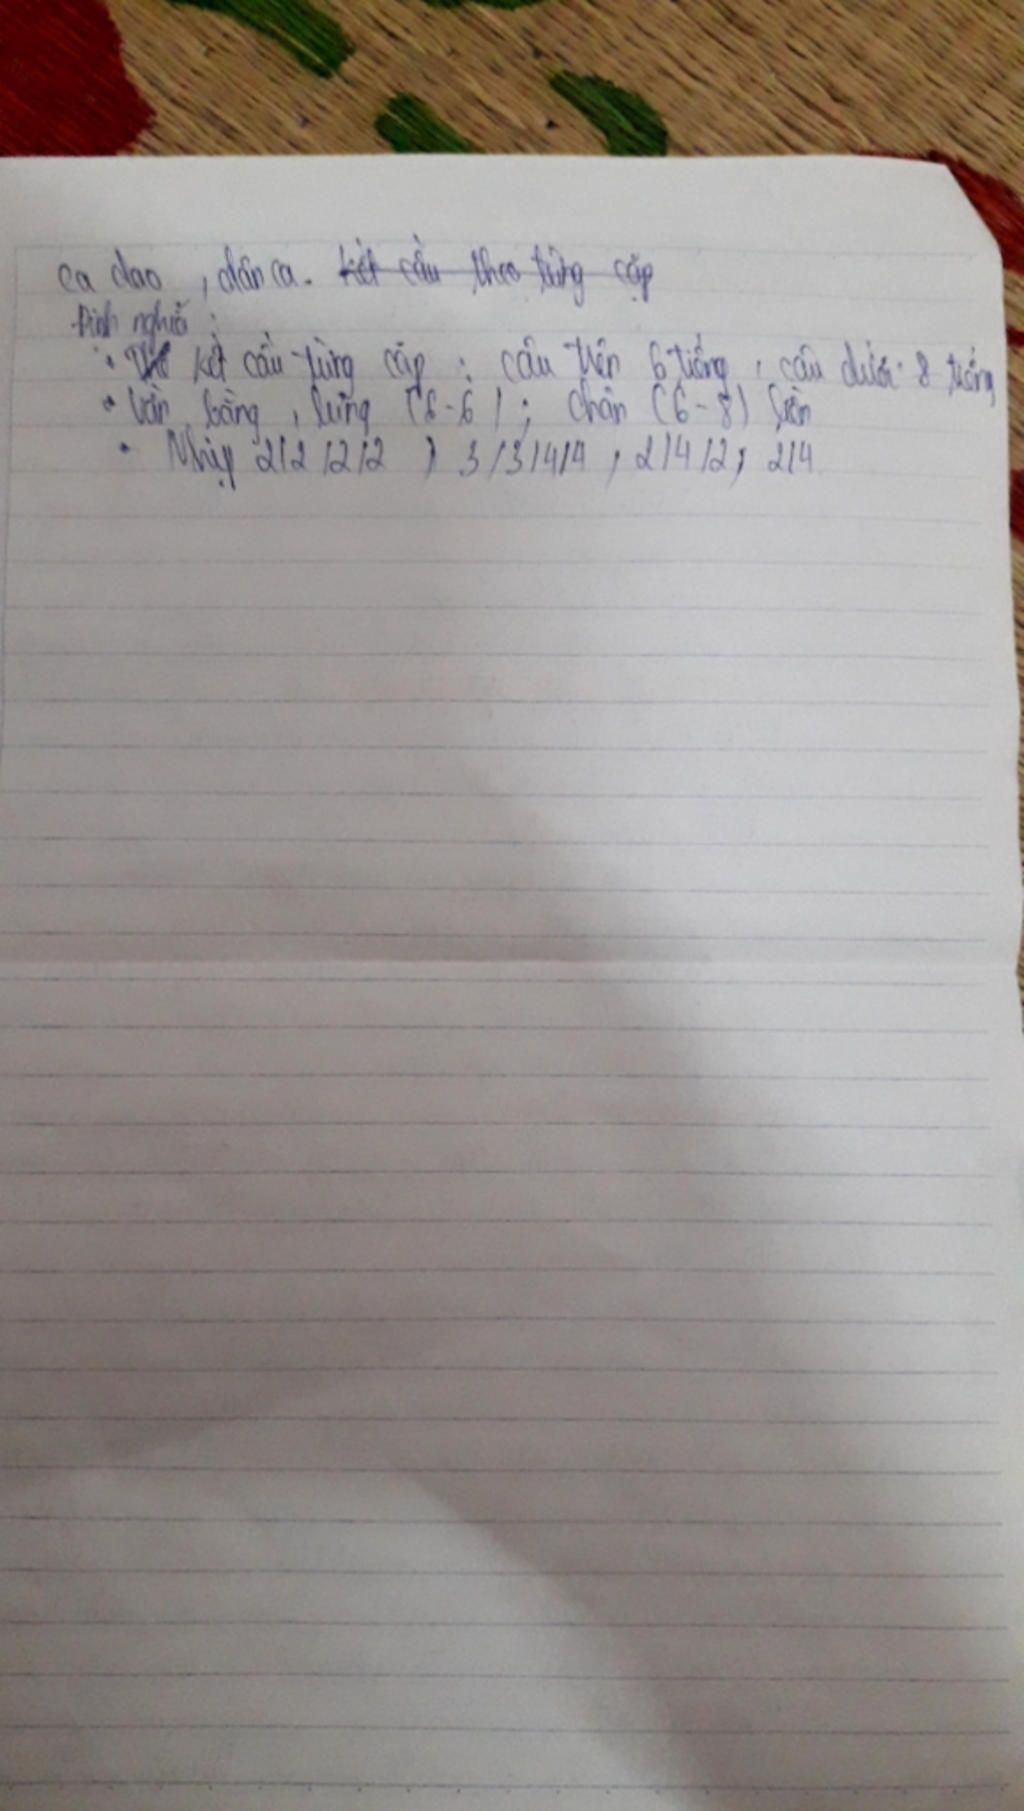 ca dao , dân ca. kết cấu theo từng cặp
Định nghĩa :
• kết cấu từng cặp : câu trên 6 tiếng , câu dưới 8 tiếng
• Vần bằng , lưng (6-6) ; chân (6-8) liền
• Nhịp 2/2/2/2 , 3/3/4/4 , 2/4/2, 2/4